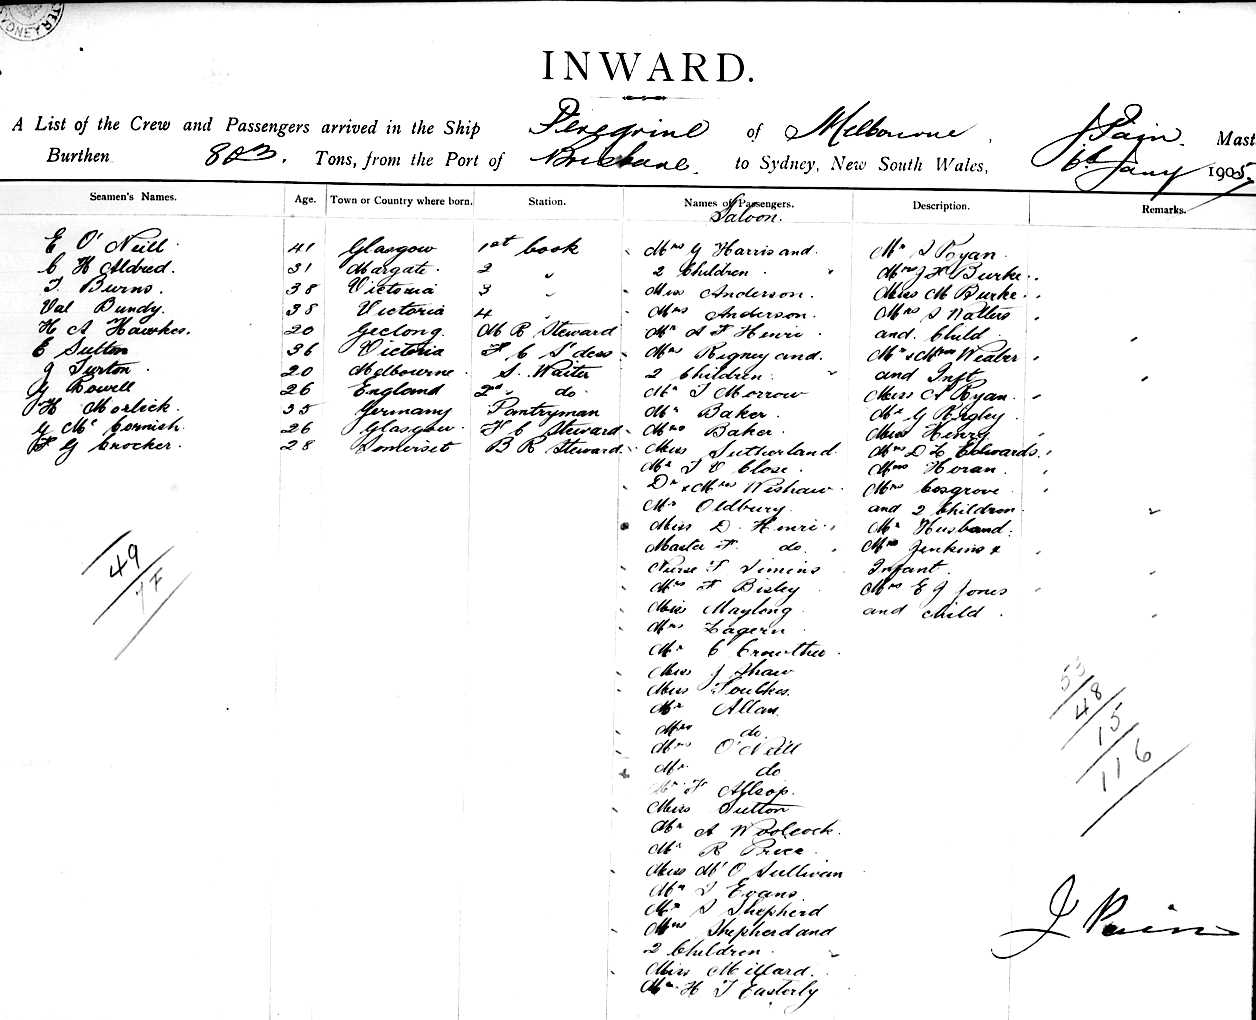 INWARD.
A List of the Crew and Passengers arrived in the Ship Peregrine of Melbourne, J Pain. Mast
Burthen 803. Tons, from the Port of Brisbane. to Sydney, New South Wales, 6th Jany 1905
Seamen's Names. Age. Town or Country where born. Station. Names of Passengers. Description. Remarks.
Saloon.
E O'Neill 41 Glasgow 1st Cook Mrs G Harris and Mr J Ryan
C H Aldred. 31 Margate. 2 " 2 Children Mrs J H Burke
T Burns. 38 Victoria 3 " Miss Anderson. Miss M Burke
Val Bundy. 35 Victoria 4 " Mrs Anderson. Mrs S Watters
H A Hawkes. 20 Geelong. M R Steward Mr A F Henri and Child
E Sutton 36 Victoria F C S'dess Mrs Rigney and Mr & Mrs Weaber
J Turton 20 Melbourne S. Waiter 2 Children and Inft
G Rowell 26 England 2nd do. Mr T Morrow Miss A Ryan
H Morlick. 35 Germany Pantryman Mr Baker Mr G Rigley
G Mc Cornish. 26 Glasgow. F C Steward Mrs Baker Miss Henry
F G Crocker. 28 Somerset B R Steward Miss Sutherland Mrs D L Edwards.
Mr T V Close. Mrs Horan.
Dr & Mrs Wishaw Mrs Cosgrove
Mr Oldbury. and 2 Children
Miss D Henri Mr Husband.
Master F. do. Mrs Jenkins &
Nurse T Simins Infant.
Mrs F Bisley Mrs E J Jones
Miss Maylong and child
Mrs Lagern
49 Mr C Crowther
7F Miss J Shaw
Miss Foulkes
Mr Allan
53
48
15
116
Mrs do.
Mrs O'Neill
Mr do
Mr F Allsop.
Miss Sutton
Mr A Woolcock.
Mr R Price
Miss Mc O Sullivan
Mr T Evans
Mr S Shepherd
Mrs Shepherd and
2 Children
Miss Millard.
Mr H T Easterly
J Pain